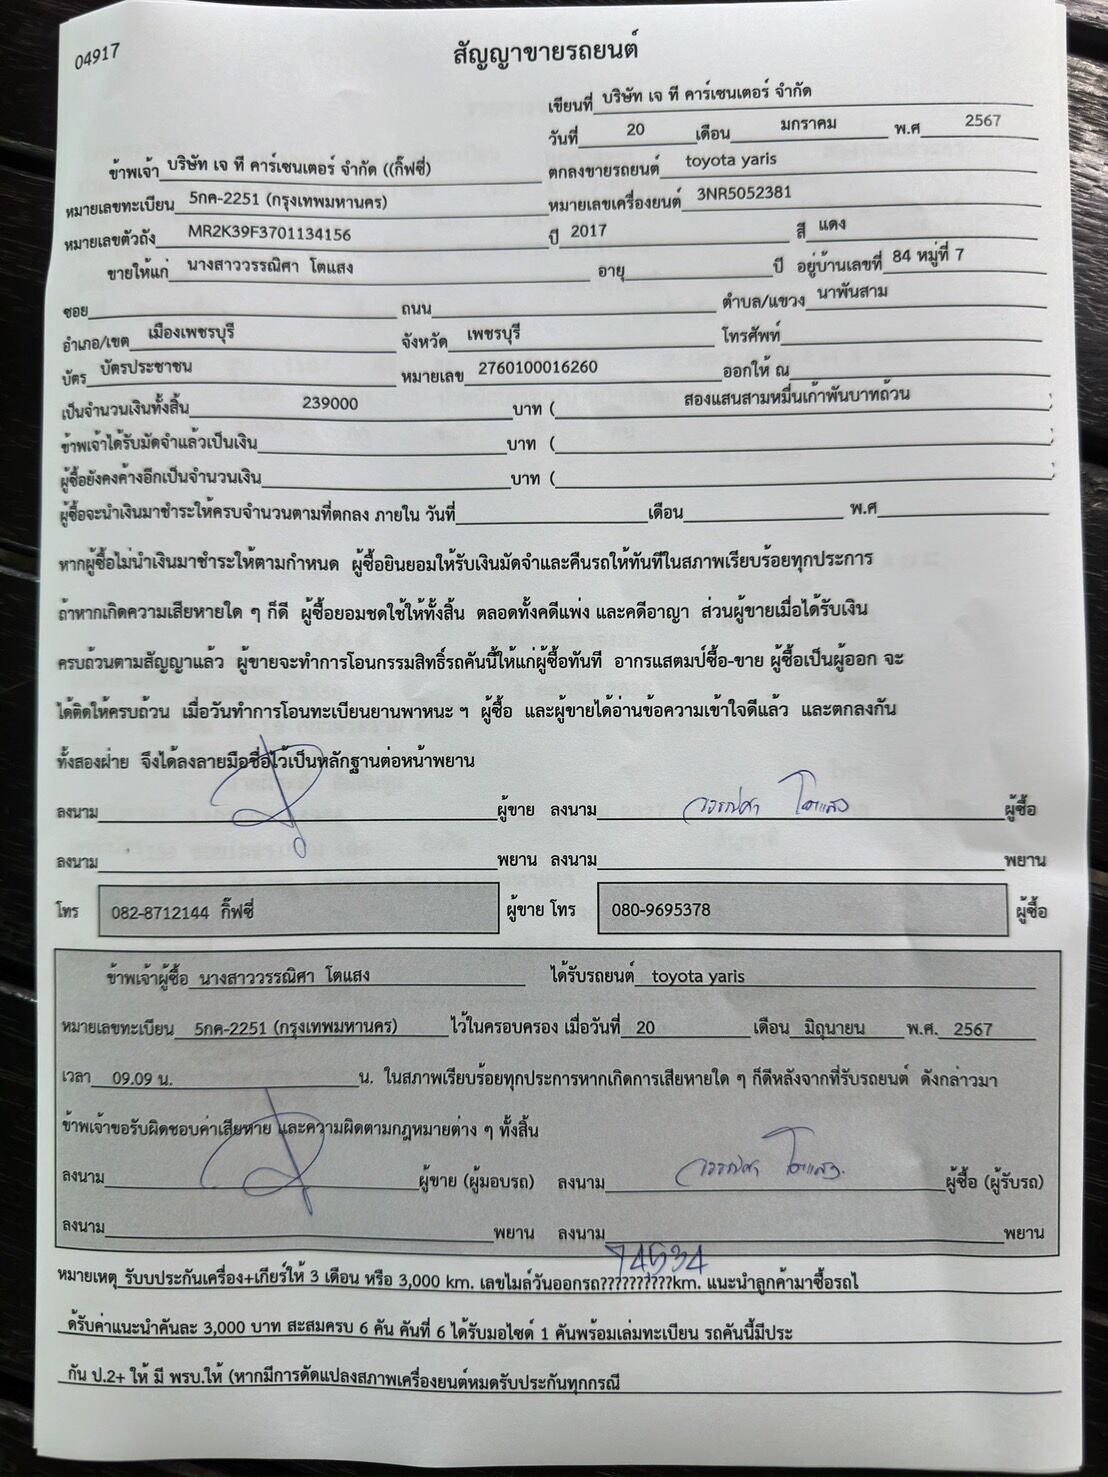 04917
สัญญาขายรถยนต์
เขียนที่ บริษัท เจ ที คาร์เซนเตอร์ จำกัด
วันที่ 20 เดือน มกราคม พ.ศ 2567
ข้าพเจ้า บริษัท เจ ที คาร์เซนเตอร์ จำกัด ((กิ๊ฟซี่) ตกลงขายรถยนต์ toyota yaris
หมายเลขทะเบียน 5กค-2251 (กรุงเทพมหานคร) หมายเลขเครื่องยนต์ 3NR5052381
หมายเลขตัวถัง MR2K39F3701134156 ปี 2017 สี แดง
ขายให้แก่ นางสาววรรณิศา โตแสง อายุ ปี อยู่บ้านเลขที่ 84 หมู่ที่ 7
ซอย ถนน ตำบล/แขวง นาพันสาม
อำเภอ/เขต เมืองเพชรบุรี จังหวัด เพชรบุรี โทรศัพท์
บัตร บัตรประชาชน หมายเลข 2760100016260 ออกให้ ณ
เป็นจำนวนเงินทั้งสิ้น 239000 บาท ( สองแสนสามหมื่นเก้าพันบาทถ้วน )
ข้าพเจ้าได้รับมัดจำแล้วเป็นเงิน บาท ( )
ผู้ซื้อยังคงค้างอีกเป็นจำนวนเงิน บาท ( )
ผู้ซื้อจะนำเงินมาชำระให้ครบจำนวนตามที่ตกลง ภายใน วันที่ เดือน พ.ศ
หากผู้ซื้อไม่นำเงินมาชำระให้ตามกำหนด ผู้ซื้อยินยอมให้รับเงินมัดจำและคืนรถให้ทันทีในสภาพเรียบร้อยทุกประการ
ถ้าหากเกิดความเสียหายใด ๆ ก็ดี ผู้ซื้อยอมชดใช้ให้ทั้งสิ้น ตลอดทั้งคดีแพ่ง และคดีอาญา ส่วนผู้ขายเมื่อได้รับเงิน
ครบถ้วนตามสัญญาแล้ว ผู้ขายจะทำการโอนกรรมสิทธิ์รถคันนี้ให้แก่ผู้ซื้อทันที อากรแสตมป์ซื้อ-ขาย ผู้ซื้อเป็นผู้ออก จะ
ได้ติดให้ครบถ้วน เมื่อวันทำการโอนทะเบียนยานพาหนะ ฯ ผู้ซื้อ และผู้ขายได้อ่านข้อความเข้าใจดีแล้ว และตกลงกัน
ทั้งสองฝ่าย จึงได้ลงลายมือชื่อไว้เป็นหลักฐานต่อหน้าพยาน
ลงนาม ผู้ขาย ลงนาม วรรณิศา โตแสง ผู้ซื้อ
ลงนาม พยาน ลงนาม พยาน
โทร 082-8712144 กิ๊ฟซี่ ผู้ขาย โทร 080-9695378 ผู้ซื้อ
ข้าพเจ้าผู้ซื้อ นางสาววรรณิศา โตแสง ได้รับรถยนต์ toyota yaris
หมายเลขทะเบียน 5กค-2251 (กรุงเทพมหานคร) ไว้ในครอบครอง เมื่อวันที่ 20 เดือน มิถุนายน พ.ศ. 2567
เวลา 09.09 น. น. ในสภาพเรียบร้อยทุกประการหากเกิดการเสียหายใด ๆ ก็ดีหลังจากที่รับรถยนต์ ดังกล่าวมา
ข้าพเจ้าขอรับผิดชอบค่าเสียหาย และความผิดตามกฎหมายต่าง ๆ ทั้งสิ้น
ลงนาม ผู้ขาย (ผู้มอบรถ) ลงนาม วรรณิศา โตแสง ผู้ซื้อ (ผู้รับรถ)
ลงนาม พยาน ลงนาม พยาน
74534
หมายเหตุ รับบประกันเครื่อง+เกียร์ให้ 3 เดือน หรือ 3,000 km. เลขไมล์วันออกรถ??????????km. แนะนำลูกค้ามาซื้อรถไ
ด้รับค่าแนะนำคันละ 3,000 บาท สะสมครบ 6 คัน คันที่ 6 ได้รับมอไซด์ 1 คันพร้อมเล่มทะเบียน รถคันนี้มีประ
กัน ป.2+ ให้ มี พรบ.ให้ (หากมีการดัดแปลงสภาพเครื่องยนต์หมดรับประกันทุกกรณี